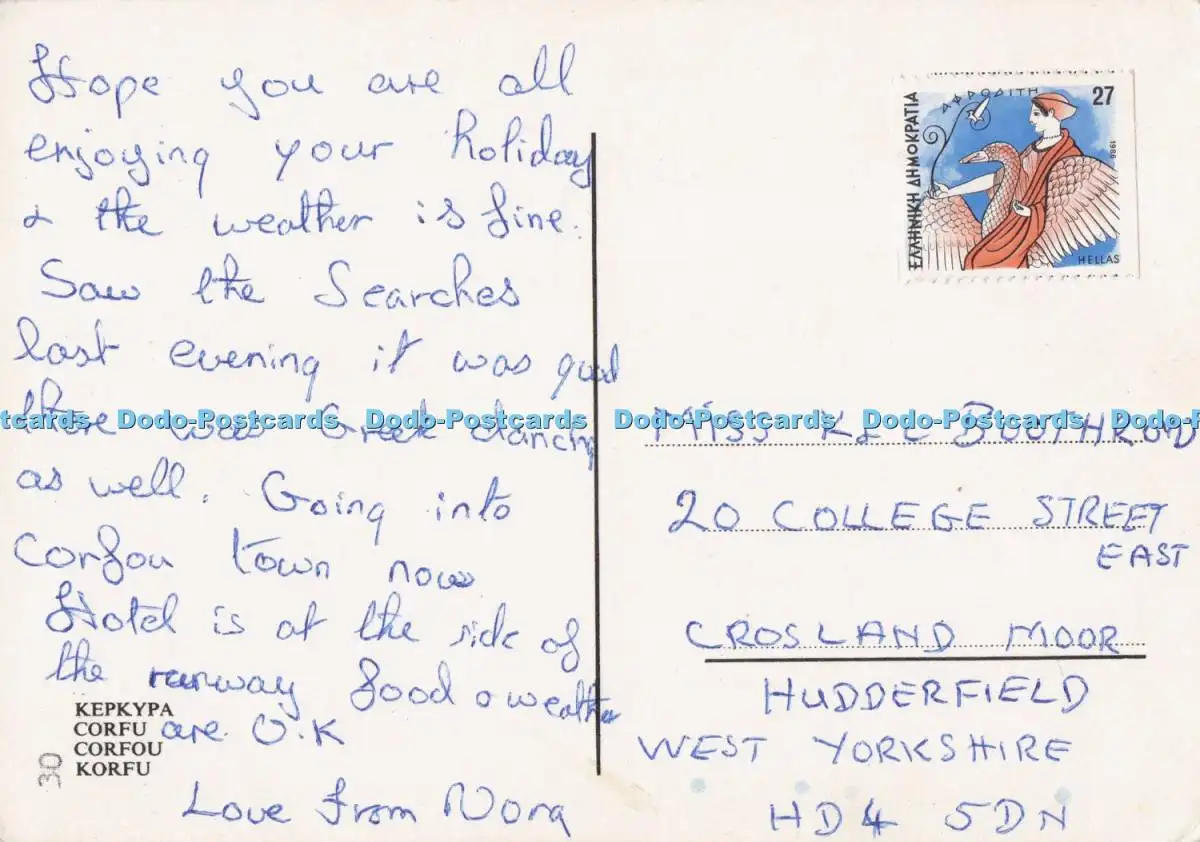 Hope you are all
enjoying your holiday
& the weather is fine.
Saw the Searches
last evening it was good
there was Greek dancing
as well. Going into
Corfou town now
Hotel is at the side of
the runway food & weather
are O.K
Love from Nora
ΚΕΡΚΥΡΑ
CORFU
CORFOU
KORFU
30
ΑΦΡΟΔΙΤΗ
27
ΕΛΛΗΝΙΚΗ ΔΗΜΟΚΡΑΤΙΑ
1986
HELLAS
MISS K & C BOOTHROYD
20 COLLEGE STREET
EAST
CROSLAND MOOR
HUDDERFIELD
WEST YORKSHIRE
HD4 5DN
Dodo-Postcards Dodo-Postcards Dodo-Postcards Dodo-Postcards